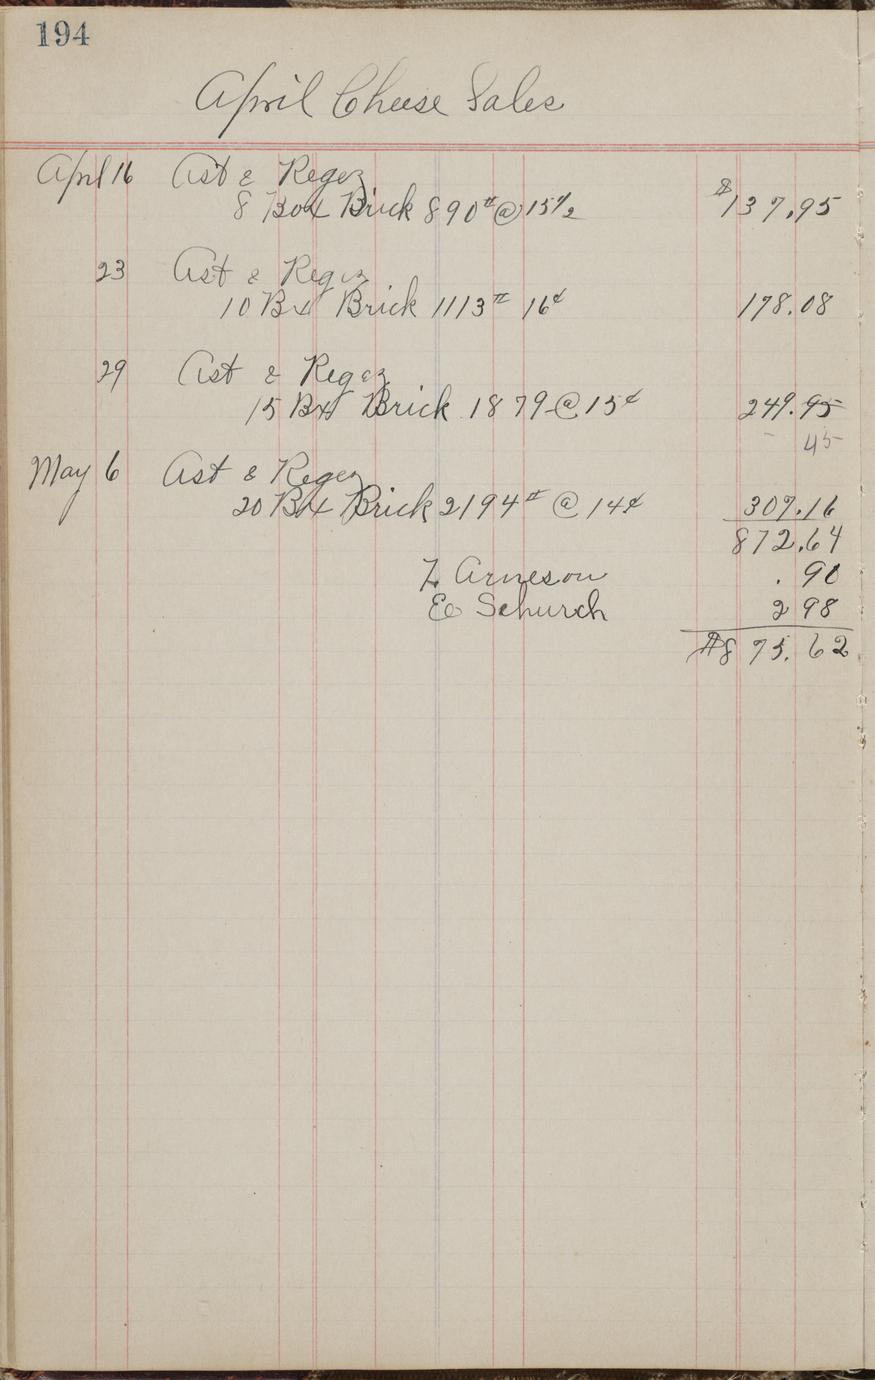 194
April Cheese Sales
April 16 Ast & Regez
8 Box Brick 890# @ 15 1/2 $137.95
23 Ast & Regez
10 Bx Brick 1113# 16¢ 178.08
29 Ast & Regez
15 Bx Brick 1879 @ 15¢ 249.95
45
May 6 Ast & Regez
20 Bx Brick 2194# @ 14¢ 307.16
872.64
Arneson .90
Ed Schurch 2 98
$875.62